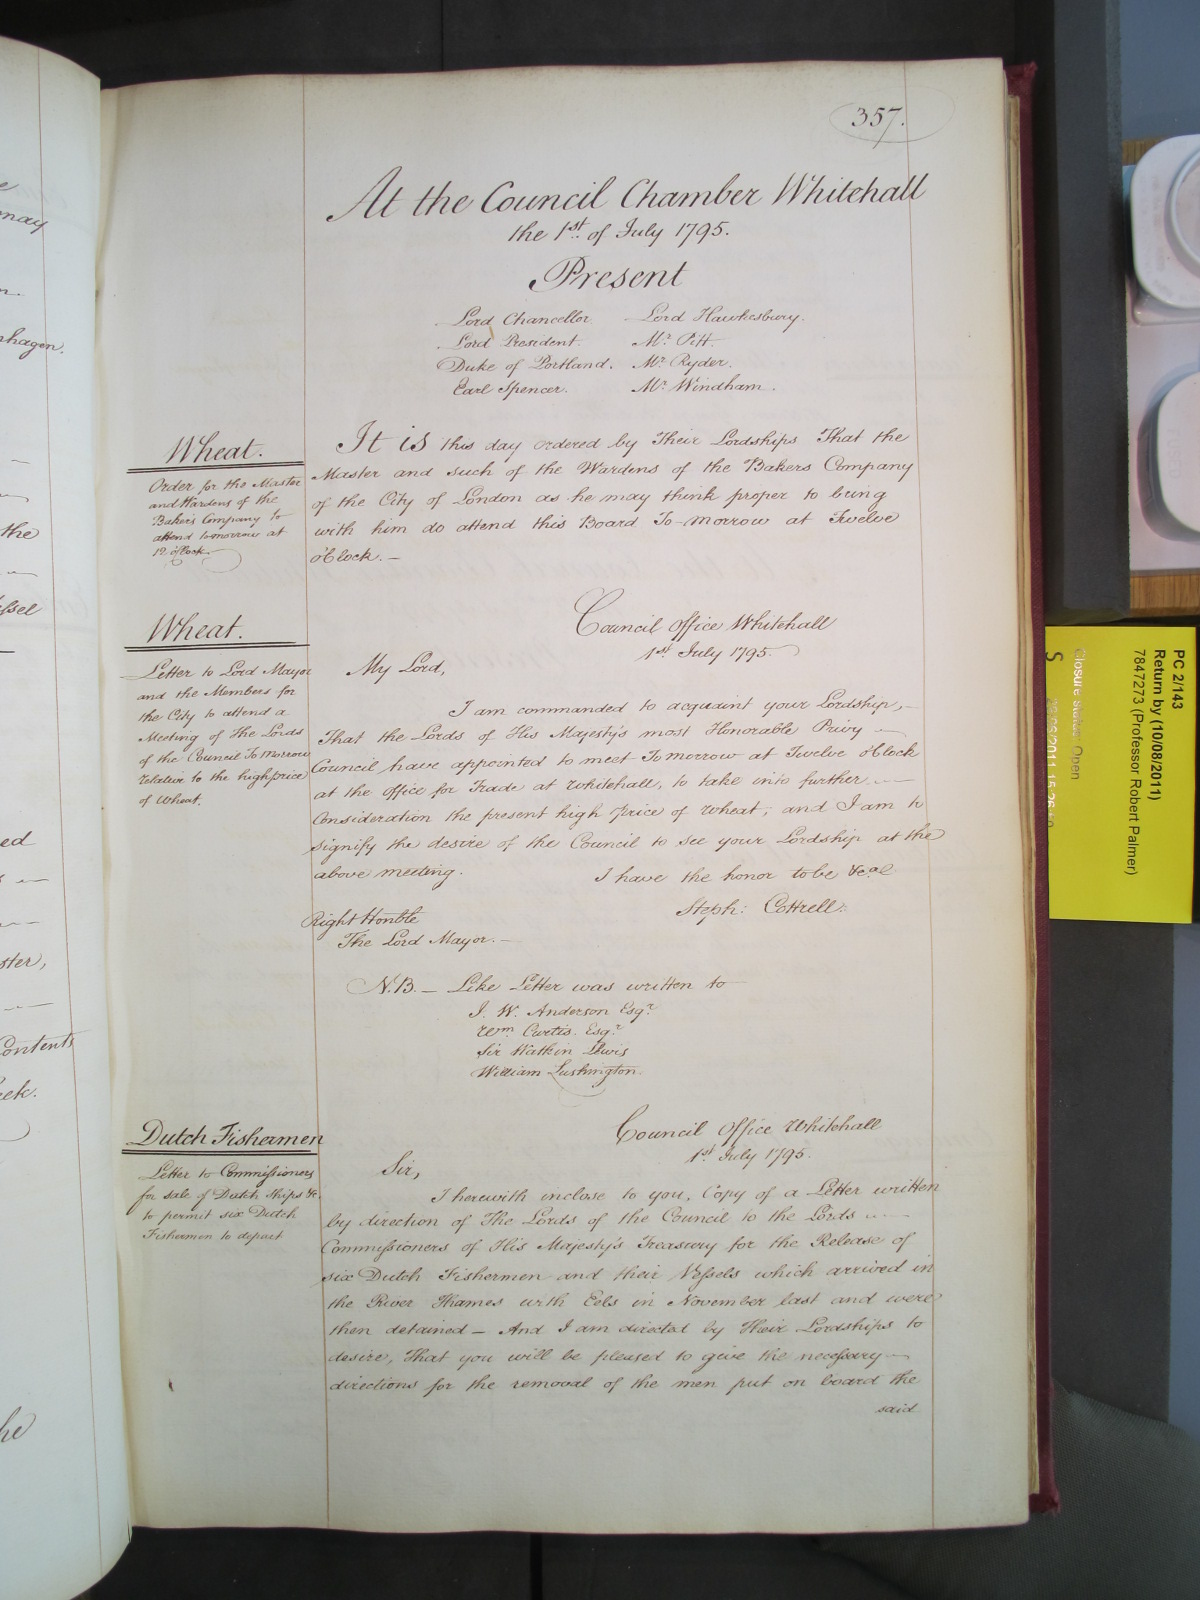 357.
At the Council Chamber Whitehall
the 1st. of July 1795.
Present
Lord Chancellor. Lord Hawkesbury.
Lord President. Mr. Pitt.
Duke of Portland. Mr. Ryder.
Earl Spencer. Mr. Windham.
Wheat.
Order for the Master
and Wardens of the
Bakers Company to
attend tomorrow at
12 o'Clock.
It is this day ordered by Their Lordships That the
Master and such of the Wardens of the Bakers Company
of the City of London as he may think proper to bring
with him do attend this Board To-morrow at Twelve
o'Clock.—
Wheat.
Letter to Lord Mayor
and the Members for
the City to attend a
Meeting of the Lords
of the Council To morrow
relative to the high price
of Wheat.
Council Office Whitehall
1st. July 1795.
My Lord,
I am commanded to acquaint your Lordship,—
That the Lords of His Majesty's most Honorable Privy —
Council have appointed to meet To morrow at Twelve o'Clock
at the Office for Trade at Whitehall, to take into further —
Consideration the present high Price of Wheat; and I am to
signify the desire of the Council to see your Lordship at the
above meeting.
I have the honor to be &ca.
Steph: Cottrell.
Right Honble
The Lord Mayor.—
N.B.— Like Letter was written to —
J. W. Anderson Esqr.
Wm. Curtis. Esqr.
Sir Watkin Lewis
William Lushington.
Dutch Fishermen
Letter to Commissioners
for sale of Dutch Ships &c.
to permit six Dutch
Fishermen to depart
Council Office Whitehall
1st. July 1795.
Sir,
I herewith inclose to you, Copy of a Letter written
by direction of The Lords of the Council to the Lords —
Commissioners of His Majesty's Treasury for the Release of
six Dutch Fishermen and their Vessels which arrived in
the River Thames with Eels in November last and were
then detained — And I am directed by Their Lordships to
desire, That you will be pleased to give the necessary —
directions for the removal of the men put on board the
said
PC 2/143
Return by (10/08/2011)
7847273 (Professor Robert Palmer)
Closure Status: Open
S
may
nhagen.
the
essel
ed
ster,
Contents
eek.
he